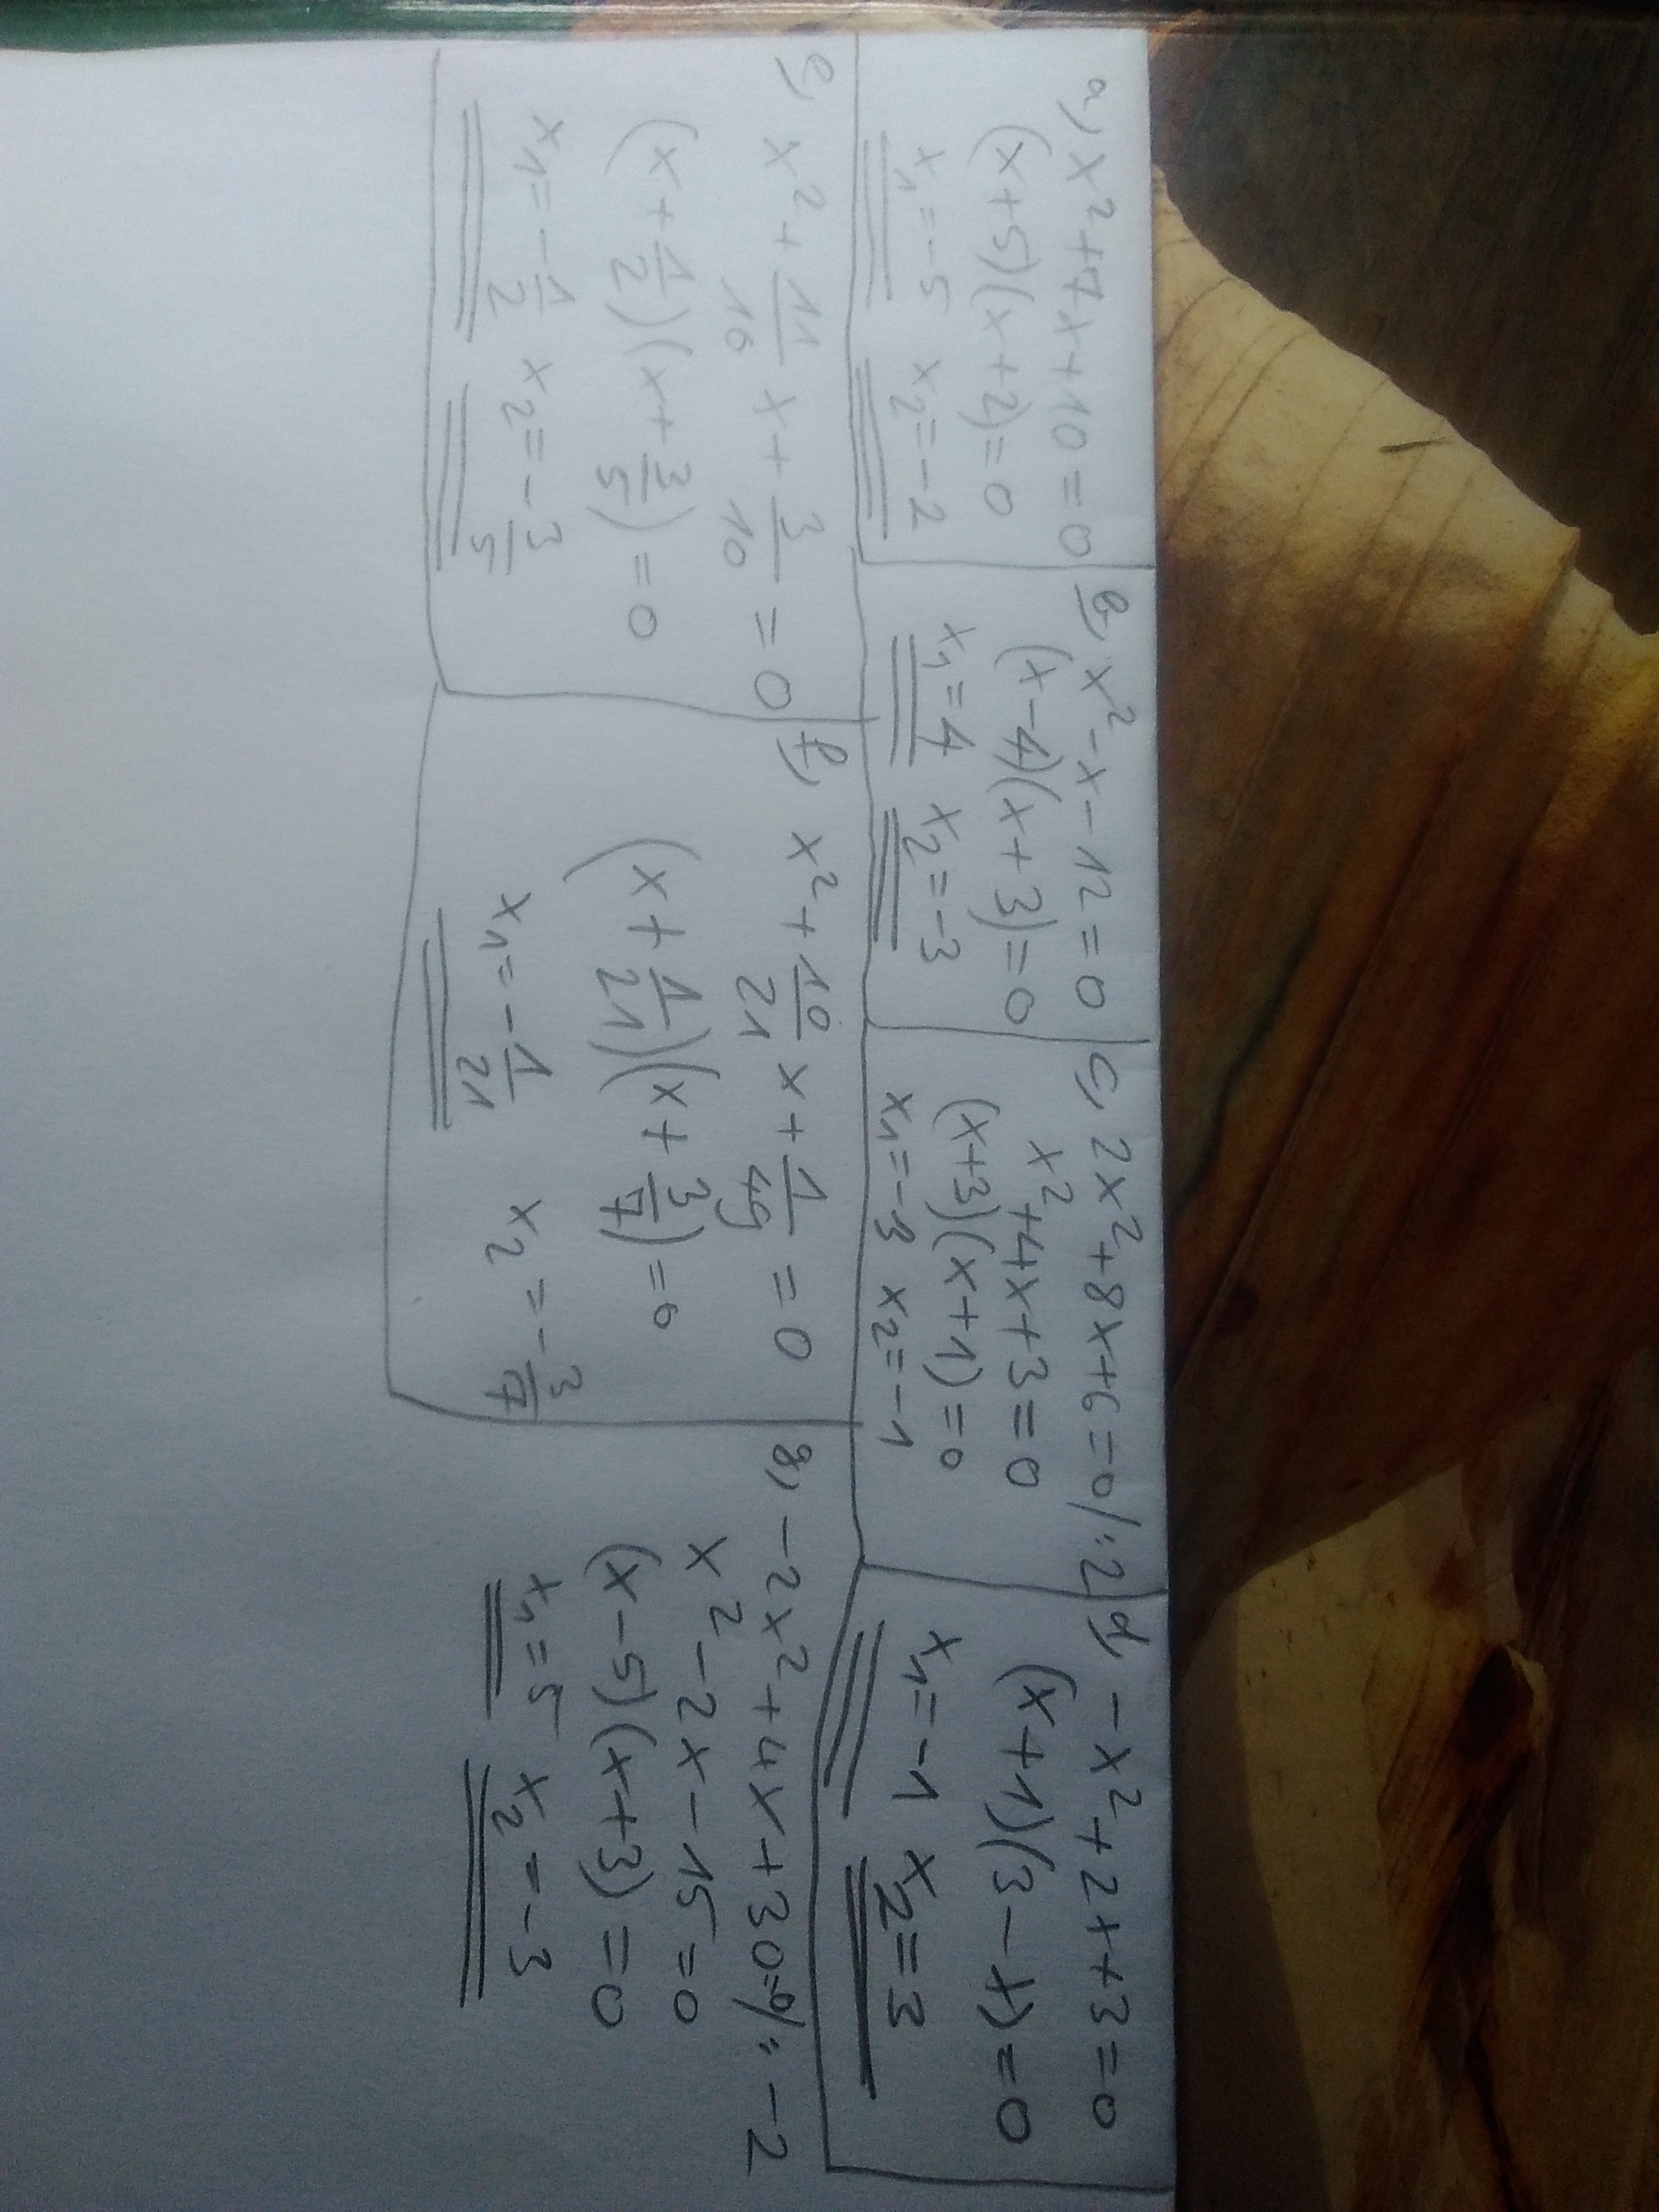 a) x²+7x+10=0
(x+5)(x+2)=0
x₁=-5 x₂=-2
b) x²-x-12=0
(x-4)(x+3)=0
x₁=4 x₂=-3
c) 2x²+8x+6=0/:2
x²+4x+3=0
(x+3)(x+1)=0
x₁=-3 x₂=-1
d) -x²+2x+3=0
(x+1)(3-x)=0
x₁=-1 x₂=3
e) x²+11/10 x+3/10=0
(x+1/2)(x+3/5)=0
x₁=-1/2 x₂=-3/5
f) x²+10/21 x+1/49=0
(x+1/21)(x+3/7)=0
x₁=-1/21 x₂=-3/7
g) -2x²+4x+30=0/:-2
x²-2x-15=0
(x-5)(x+3)=0
x₁=5 x₂=-3